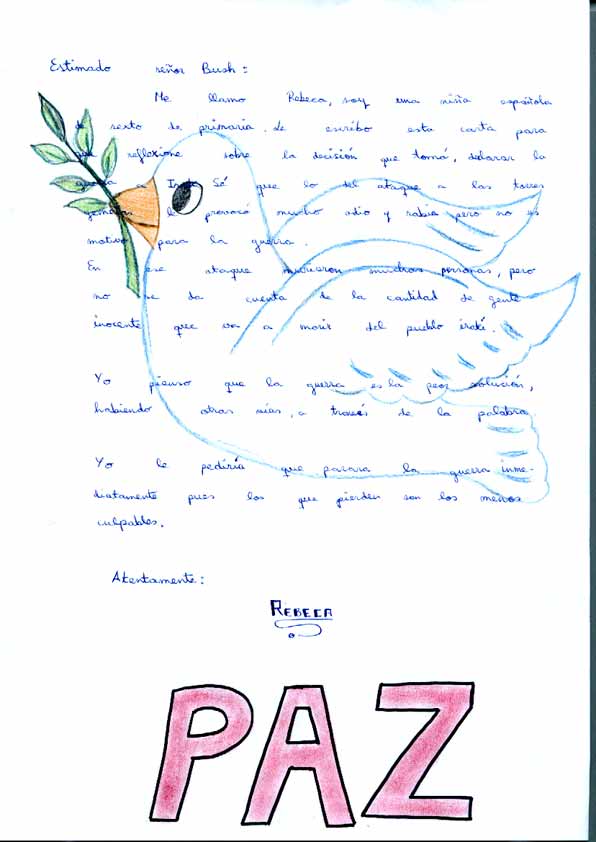 Estimado señor Bush:
Me llamo Rebeca, soy una niña española
de sexto de primaria. Le escribo esta carta para
que reflexione sobre la decisión que tomó, declarar la
guerra a Irak. Sé que lo del ataque a las torres
gemelas le provocó mucho odio y rabia pero no es
motivo para la guerra.
En ese ataque murieron muchas personas, pero
no se da cuenta de la cantidad de gente
inocente que va a morir del pueblo irakí.
Yo pienso que la guerra es la peor solución,
habiendo otras vías, a través de la palabra
Yo le pediría que parara la guerra inme-
diatamente pues los que pierden son los menos
culpables.
Atentamente:
REBECA
PAZ